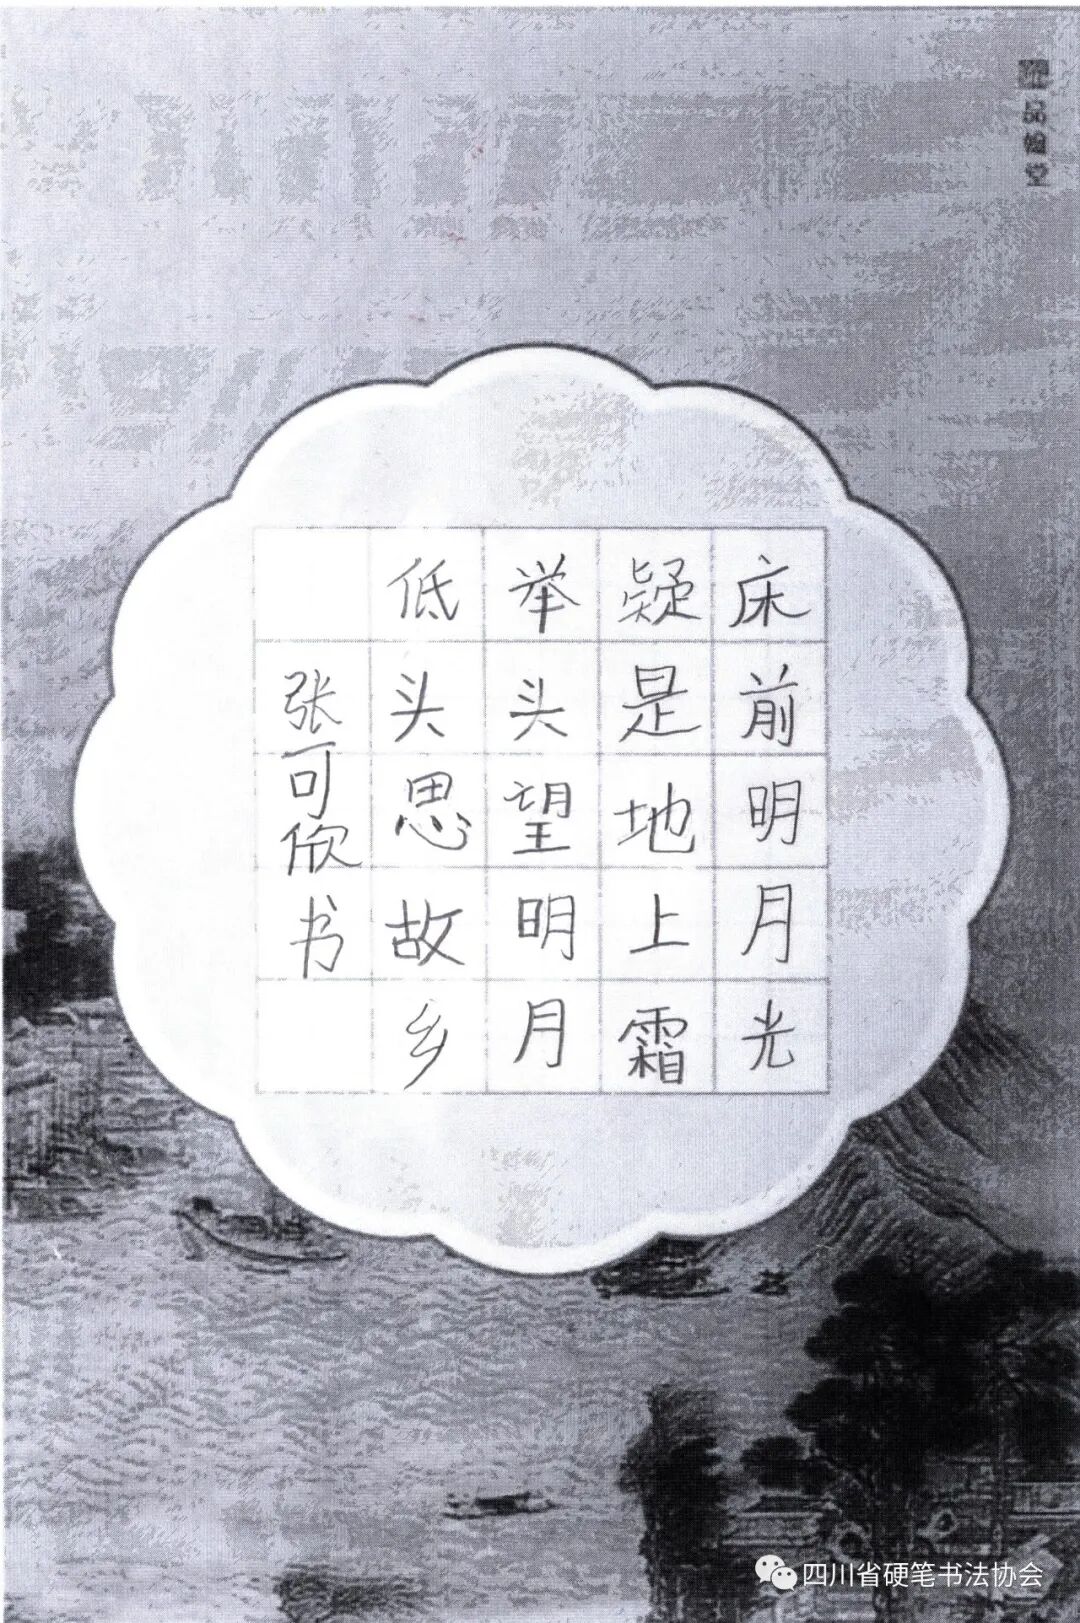 床前明月光
疑是地上霜
举头望明月
低头思故乡
张可欣书
品鹤堂
四川省硬笔书法协会